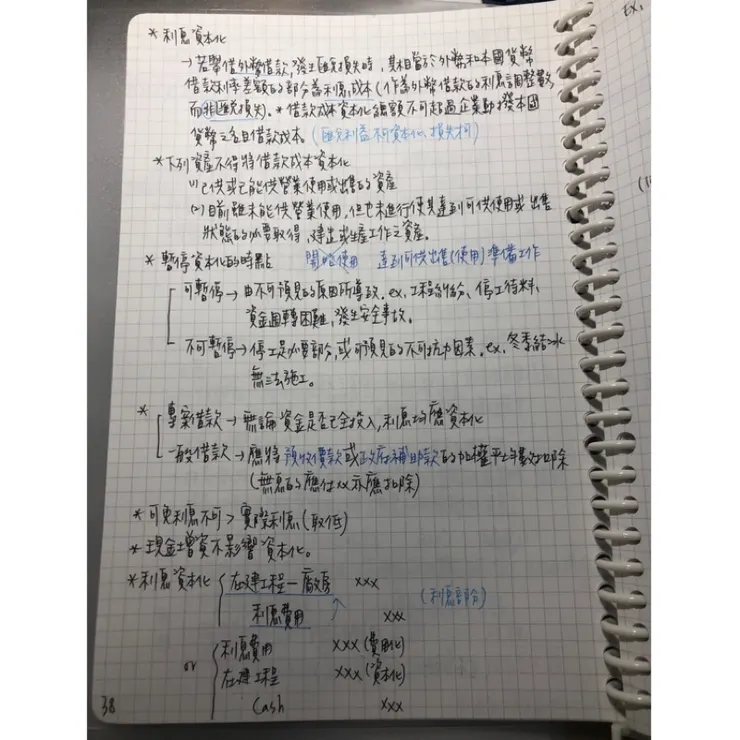 Ex.
*利息資本化
→若舉借外幣借款,發生匯兌損失時,其相當於外幣和本國貨幣
借款利率差額的部分為利息成本(作為外幣借款的利息調整數,
而非匯兌損失)。*借款成本資本化總額不可超過企業動撥本國
貨幣之名目借款成本。(匯兌利益不可資本化、損失可)
*下列資產不得將借款成本資本化
(1)已供或已能供營業使用或出售的資產
(2)目前雖未能供營業使用,但也未進行使其達到可供使用或出售
狀態的必要取得,建造或生產工作之資產。
*暫停資本化的時點 開始使用 達到可供出售(使用)準備工作
可暫停→由不可預見的原因所導致.ex.工程糾紛、停工待料、
資金週轉困難,發生安全事故。
不可暫停→停工是必要部分,或可預見的不可抗力因素.ex.冬季結冰
無法施工。
*專案借款→無論資金是否已全投入,利息均應資本化
一般借款→應將預收價款或政府補助款的加權平均數扣除
(無息的應付xx亦應扣除)
*可免利息不可>實際利息(取低)
*現金增資不影響資本化。
*利息資本化 在建工程-廠房 xxx
利息費用 xxx (利息部分)
or 利息費用 xxx(費用化)
在建工程 xxx(資本化)
Cash xxx
38